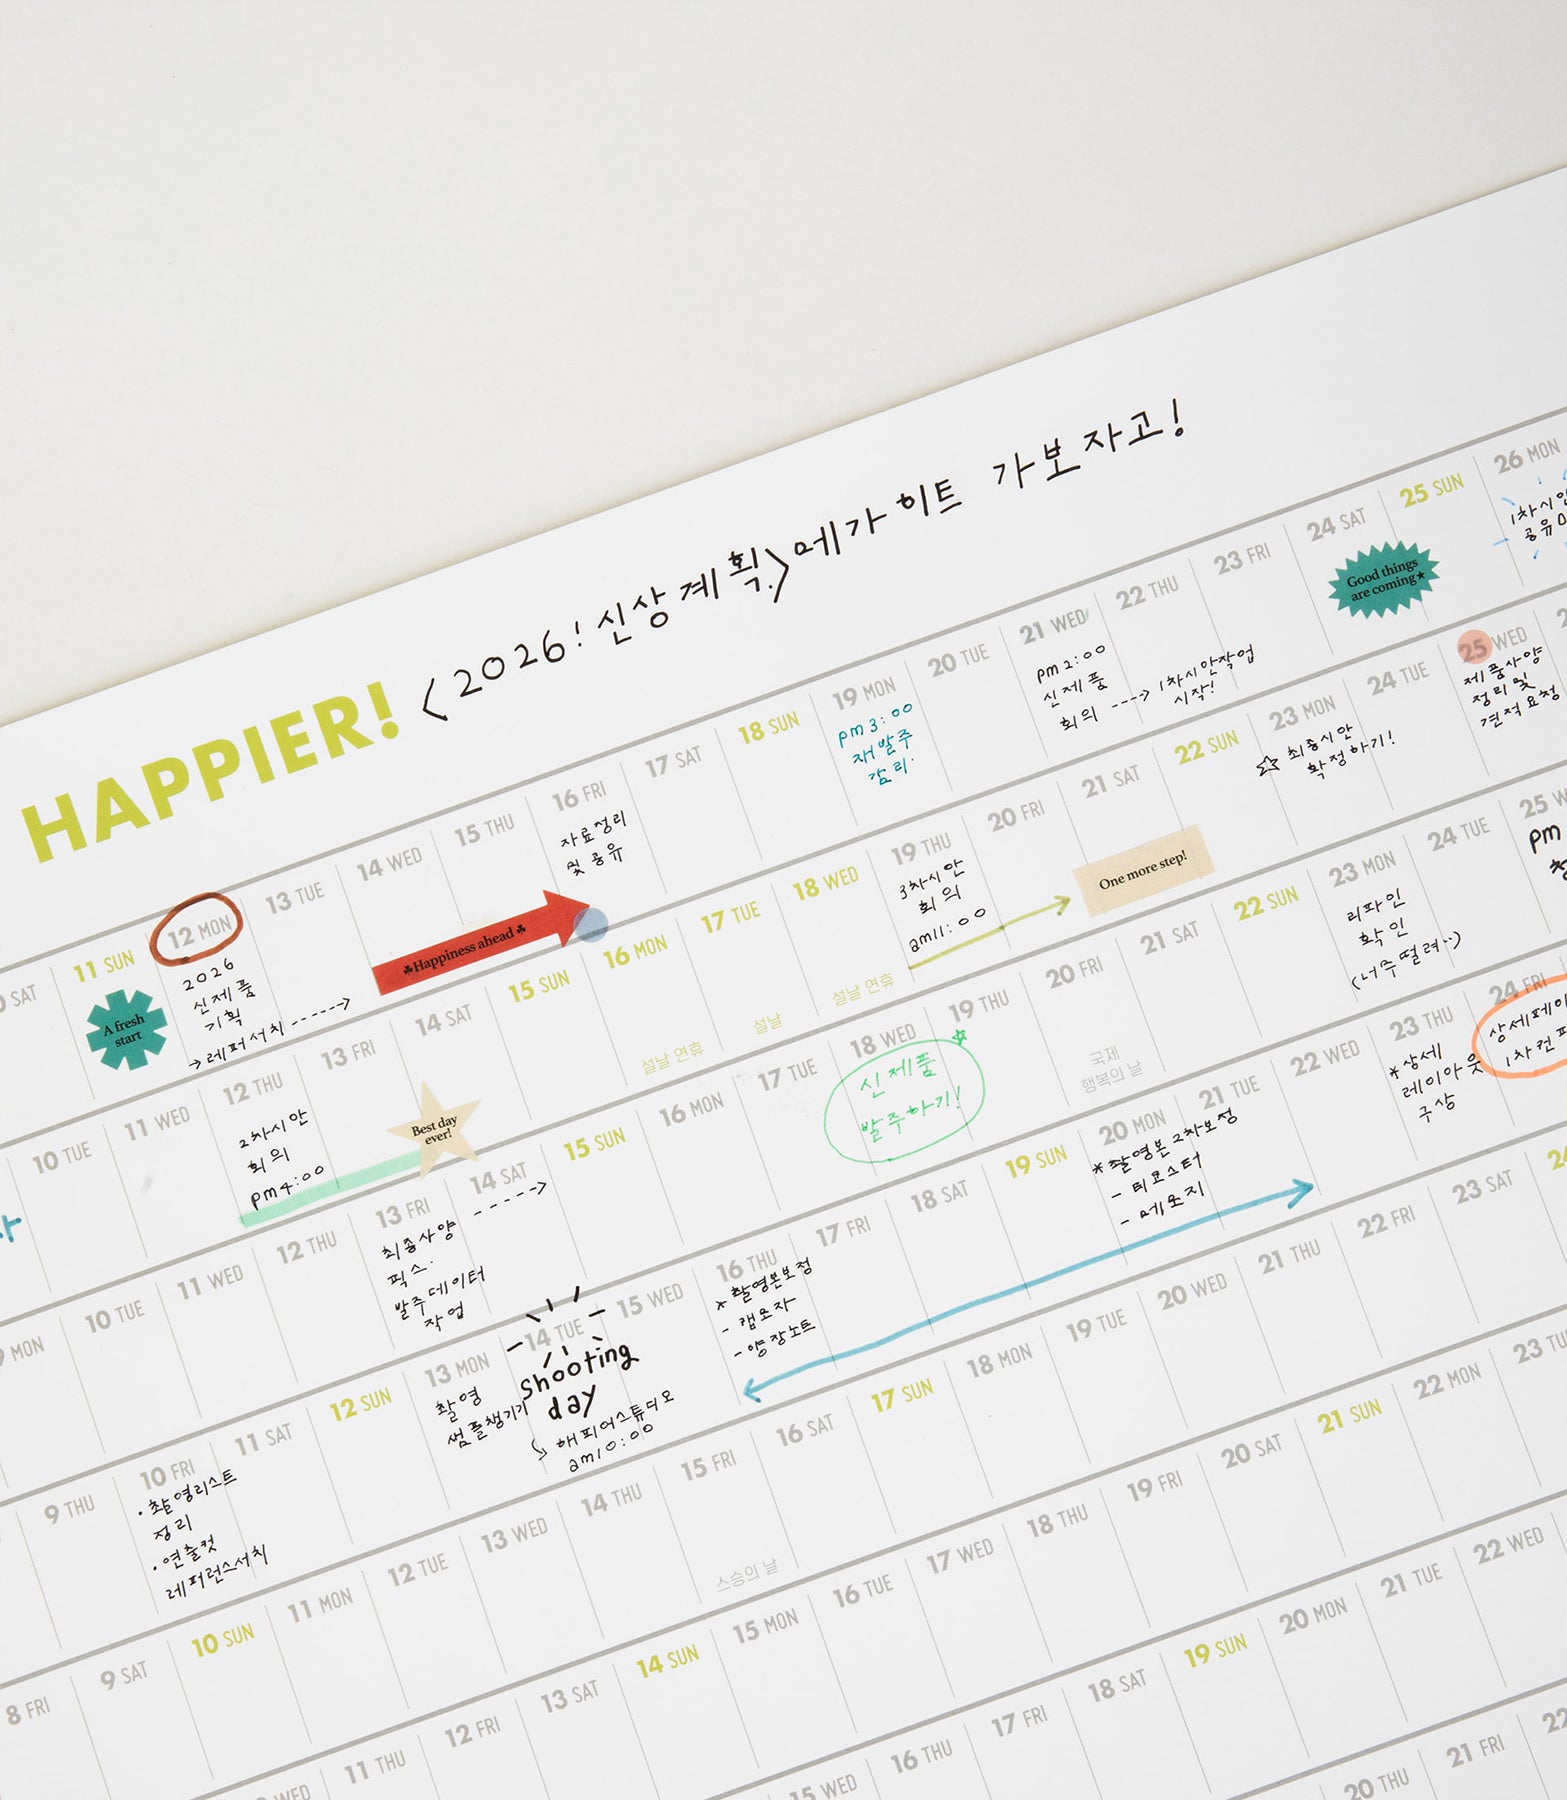 HAPPIER!
<2026! 신상계획.> 메가히트 가보자고!
SAT
11 SUN
12 MON
13 TUE
14 WED
15 THU
16 FRI
17 SAT
18 SUN
19 MON
20 TUE
21 WED
22 THU
23 FRI
24 SAT
25 SUN
26 MON
A fresh
start
2026
신제품
기획
→레퍼서치 ------>
Happiness ahead
자료정리
및 공유
pm3:00
재발주
감리.
pm2:00
신제품
회의 ----> 1차시안작업
시작!
Good things
are coming★
1차시안
10 TUE
11 WED
12 THU
13 FRI
14 SAT
15 SUN
16 MON
17 TUE
18 WED
19 THU
20 FRI
21 SAT
22 SUN
23 MON
24 TUE
25 WED
2차시안
회의
pm4:00
Best day
ever!
설날 연휴
설날
설날 연휴
3차시안
회의
am11:00
One more step!
☆ 최종시안
확정하기!
제품사양
정리 및
견적요청
MON
10 TUE
11 WED
12 THU
13 FRI
14 SAT
15 SUN
16 MON
17 TUE
18 WED
19 THU
20 FRI
21 SAT
22 SUN
23 MON
24 TUE
25
최종사양
픽스.
발주데이터
작업
----->
신제품
발주하기!
국제
행복의 날
리파인
확인
(너무떨려..)
pm
9 THU
10 FRI
11 SAT
12 SUN
13 MON
14 TUE
15 WED
16 THU
17 FRI
18 SAT
19 SUN
20 MON
21 TUE
22 WED
23 THU
24 FRI
· 촬영리스트
정리
· 연출컷
레퍼런스서치
촬영
샘플챙기기
shooting
day
해피어스튜디오
am10:00
* 촬영본보정
- 캡모자
- 양장노트
* 촬영본2차보정
- 티코스터
- 메모지
* 상세
레이아웃
구상
상세페이
1차컨펌
8 FRI
9 SAT
10 SUN
11 MON
12 TUE
13 WED
14 THU
15 FRI
16 SAT
17 SUN
18 MON
19 TUE
20 WED
21 THU
22 FRI
23 SAT
스승의 날
11 THU
12 FRI
13 SAT
14 SUN
15 MON
16 TUE
17 WED
18 THU
19 FRI
20 SAT
21 SUN
22 MON
23
WED
15 WED
16 THU
17 FRI
18 SAT
19 SUN
20 MON
21 TUE
22 WED
20 THU
21 FRI
22